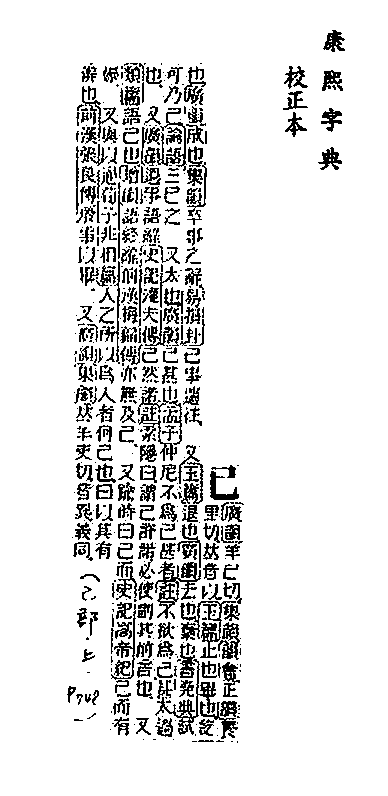 康熙字典
校正本
已
廣韻羊已切集韻韻會正韻養
里切𠀤音以玉篇止也畢也訖
也廣韻成也集韻卒事之辭易損卦已事遄往 又玉篇退也廣韻去也棄也書堯典試
可乃已論語三已之 又太也廣韻已甚也孟子仲尼不爲已甚者註不欲爲已甚太過
也 又廣韻過事語辭史記灌夫傳已然諾註索隱曰謂已許諾必使副其前言也 又
類篇語已也增韻語終辭前漢梅福傳亦無及已 又踰時曰已而史記高帝紀已而有
娠 又與以通荀子非相篇人之所以爲人者何已也曰以其有
辨也前漢張良傳殷事以畢 又廣韻集韻𠀤羊吏切音異義同 (己部.上 P748)